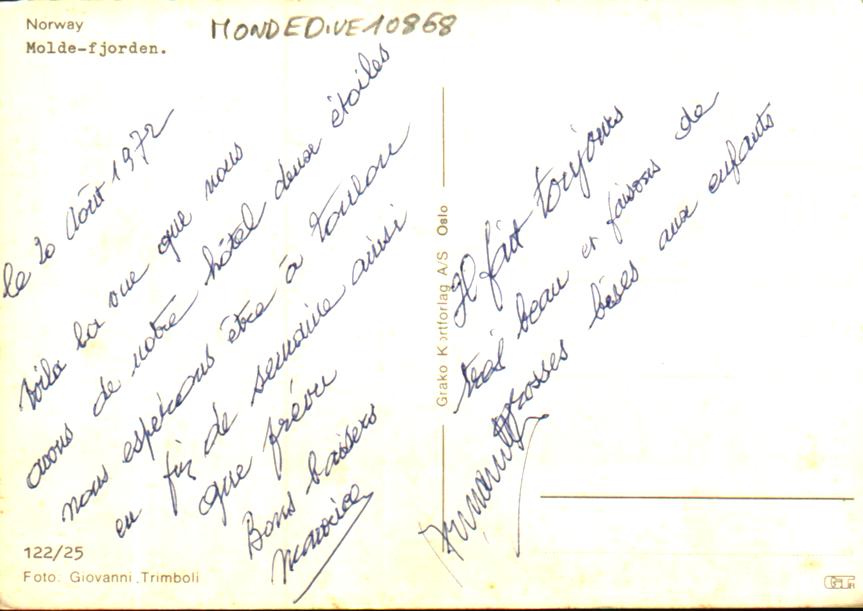 Norway
Molde-fjorden.
MONDEDIVE10868
le 20 Août 1972
Voila la vue que nous
avons de notre hôtel deux étoiles
nous espérons être à Toulon
en fin de semaine ainsi
que prévu
Bons baisers
Il fait toujours
très beau et faisons de
grosses bises aux enfants
Grako Kortforlag A/S Oslo
122/25
Foto: Giovanni Trimboli